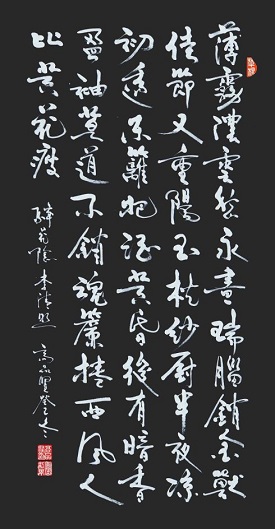 薄霧濃雲愁永晝瑞腦銷金獸
佳節又重陽玉枕紗廚半夜涼
初透東籬把酒黃昏後有暗香
盈袖莫道不銷魂簾捲西風人
比黃花瘦
醉花陰李清照